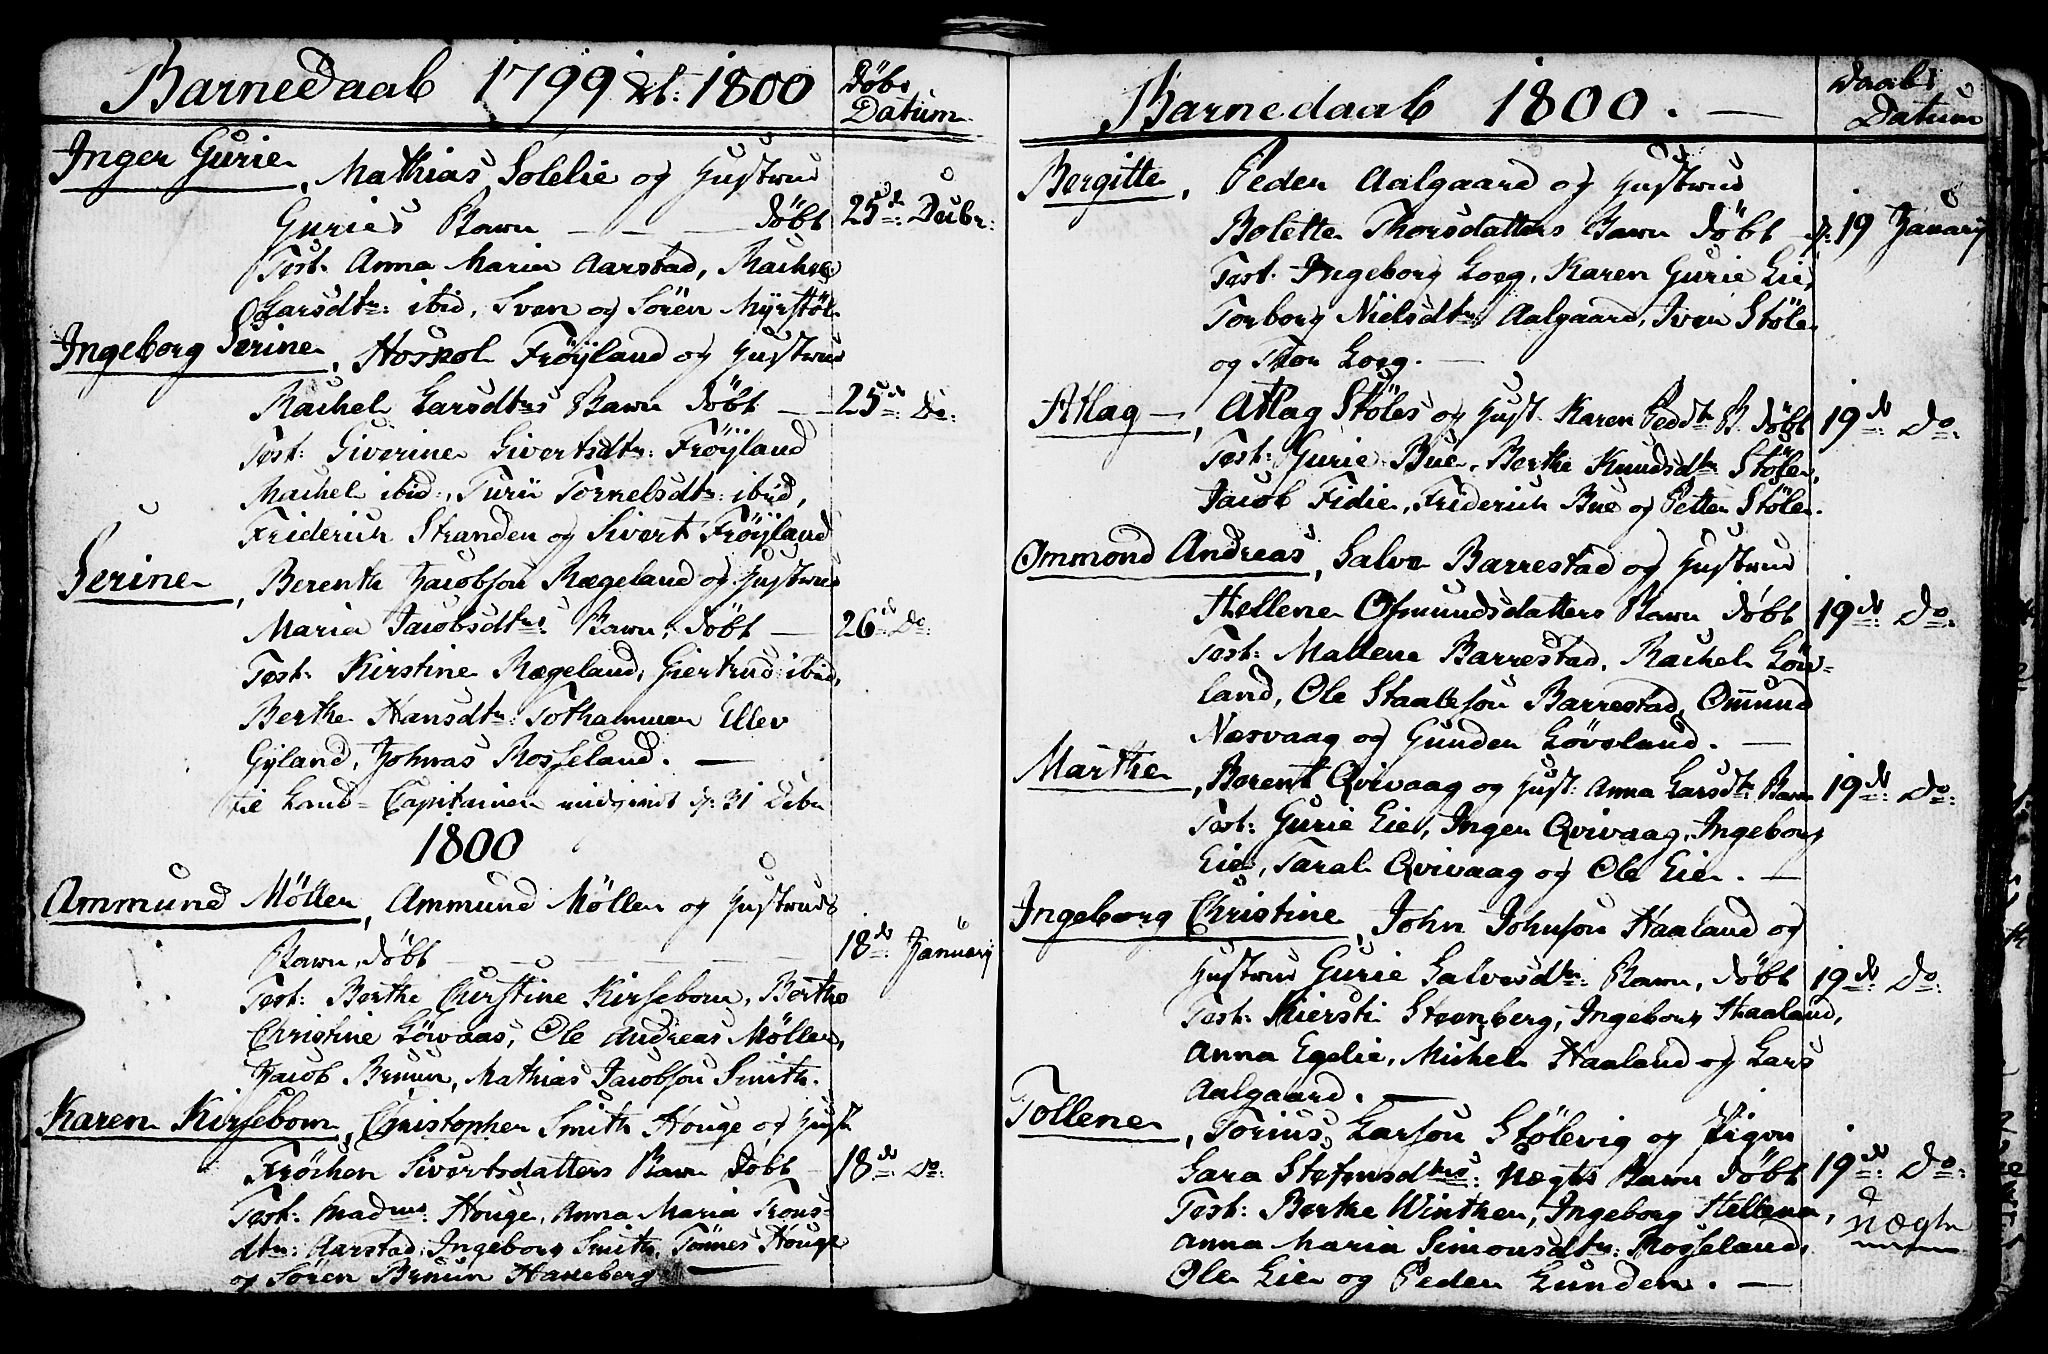 Barnedaab 1799 et: 1800
Döbs
Datum
Inger Gurie, Mathias Solelie og Hustrue
Guries Barn — — — döbt 25de: Decbr:
Test: Anna Maria Aarstad, Rachel
Larsdtr: ibid, Sven og Sören Myrstöl
Ingeborg Serine, Hoskol Fröyland og Hustrue
Rachel Larsdtrs Barn döbt — 25de: Do:
Test: Siverine Sivertsdtr: Fröyland
Rachel ibid:, Turii Tornelsdtr: ibid,
Friderich Stranden og Sivert Fröyland
Serine, Berenth Jacobson Rægeland og Hustrue
Maria Jacobsdtrs: Barn, döbt — 26de: Do:
Test: Kirstine Rægeland, Giertrud ibid,
Berthe Hansdtr: Tothammer Ellev
Gyland, Johnas Rosseland. —
til Land-Capitainen indgivet d: 31 Decbr
1800
Ammund Möller, Ammund Möller og Hustrues
Barn, döbt — — — — — 18de: January
Test: Berthe Christine Kirsebom, Berthe
Christine Lövaas, Ole Andreas Möller,
Jacob Bruun, Mathias Jacobson Smith.
Karen Kirsebom, Christopher Smith Houge og Hust
Fröchen Sivertsdatters Barn döbt 18de: Do:
Test: Madme: Houge, Anna Maria Trons-
dtr: Aarstad, Ingeborg Smith, Tönnes Houge
og Sören Bruun Haneberg —
Barnedaab 1800. —
Daabs
Datum
Bergitte, Peder Aalgaard og Hustrue
Bolette Thorsdatters Barn döbt d: 19 January
Test: Ingeborg Loeg, Karen Gurie Eie,
Torborg Nielsdtr: Aalgaard, Iver Stöle
og Thor Loeg. —
Atlag —, Atlag Stöles og Hust Karen Peddtr B. döbt 19de: Do:
Test: Gurie Bue, Berthe Knudsdtr Stöle,
Jacob Fidie, Friderich Bue og Petter Stöle.
Ommond Andreas, Salve Barrestad og Hustrue
Hellene Osmundsdatters Barn döbt 19de: Do:
Test: Mallene Barrestad, Rachel Löv-
land, Ole Staaleson Barrestad, Omund
Nesvaag og Gunder Lövland. —
Marthe, Berent Qvivaag og Hust: Anna Larsdtr: Barn 19de: Do:
Test: Gurie Eie, Inger Qvivaag, Ingeborg
Eie, Taral Qvivaag og Ole Eie. —
Ingeborg Christine, John Johnson Haaland og
Hustrue Gurie Salvesdtr: Barn, döbt 19de: Do:
Test: Kiersti Steenberg, Ingeborg Haaland,
Anna Egelie, Michel Haaland og Lars
Aalgaard. —
Tollene, Torius Larson Stölevig og Pigen
Sara Stefensdtrs: uægte Barn döbt 19de: Do:
Test: Berthe Winther, Ingeborg Helleren, uægte
Anna Maria Simonsdtr: Rosseland,
Ole Eie og Peder Lunden. —